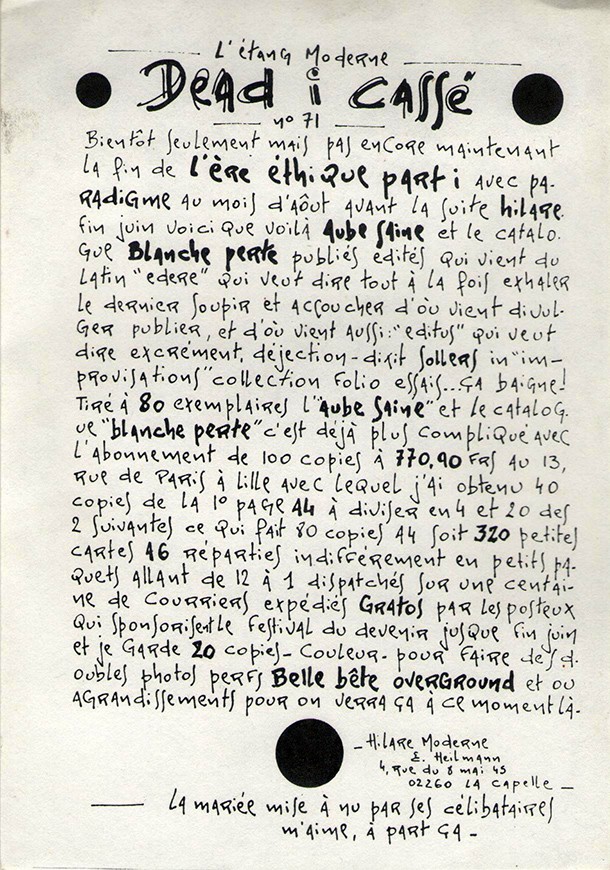 L'étang Moderne
Dead i cassë
n° 71
Bientôt seulement mais pas encore maintenant
la fin de l'ère éthique part i avec pa-
radigme au mois d'août avant la suite hilare.
fin juin voici que voilà Aube Saine et le catalo.
gue Blanche perte publiés édités qui vient du
latin "edere" qui veut dire tout à la fois exhaler
le dernier soupir et accoucher d'où vient divul-
ger publier, et d'où vient aussi: "editus" qui veut
dire excrément, déjection - dixit Sollers in "im-
provisations" collection folio essais... ça baigne!
Tiré à 80 exemplaires l'"Aube Saine" et le catalog.
ue "blanche perte" c'est déjà plus compliqué avec
l'abonnement de 100 copies à 770,90 frs au 13,
rue de Paris à Lille avec lequel j'ai obtenu 40
copies de la 1° page A4 à diviser en 4 et 20 des
2 suivantes ce qui fait 80 copies A4 soit 320 petites
cartes A6 réparties indifférement en petits pa-
quets allant de 12 à 1 dispatchés sur une centai-
ne de courriers expédiés Gratos par les posteux
qui sponsorisent le festival du devenir jusque fin juin
et je garde 20 copies - couleur - pour faire des d.
oubles photos perfs Belle bête overground et ou
agrandissements pour on verra ça à ce moment là.
- Hilare Moderne
E. Heilmann
4, rue du 8 mai 45
02260 La Capelle -
La mariée mise à nu par ses célibataires
m'aime, à part ça -